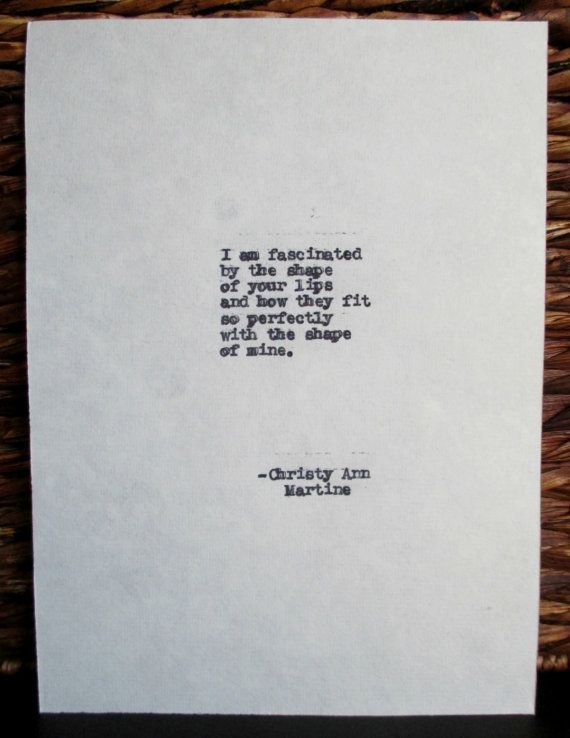 I am fascinated
by the shape
of your lips
and how they fit
so perfectly
with the shape
of mine.
-Christy Ann
Martine